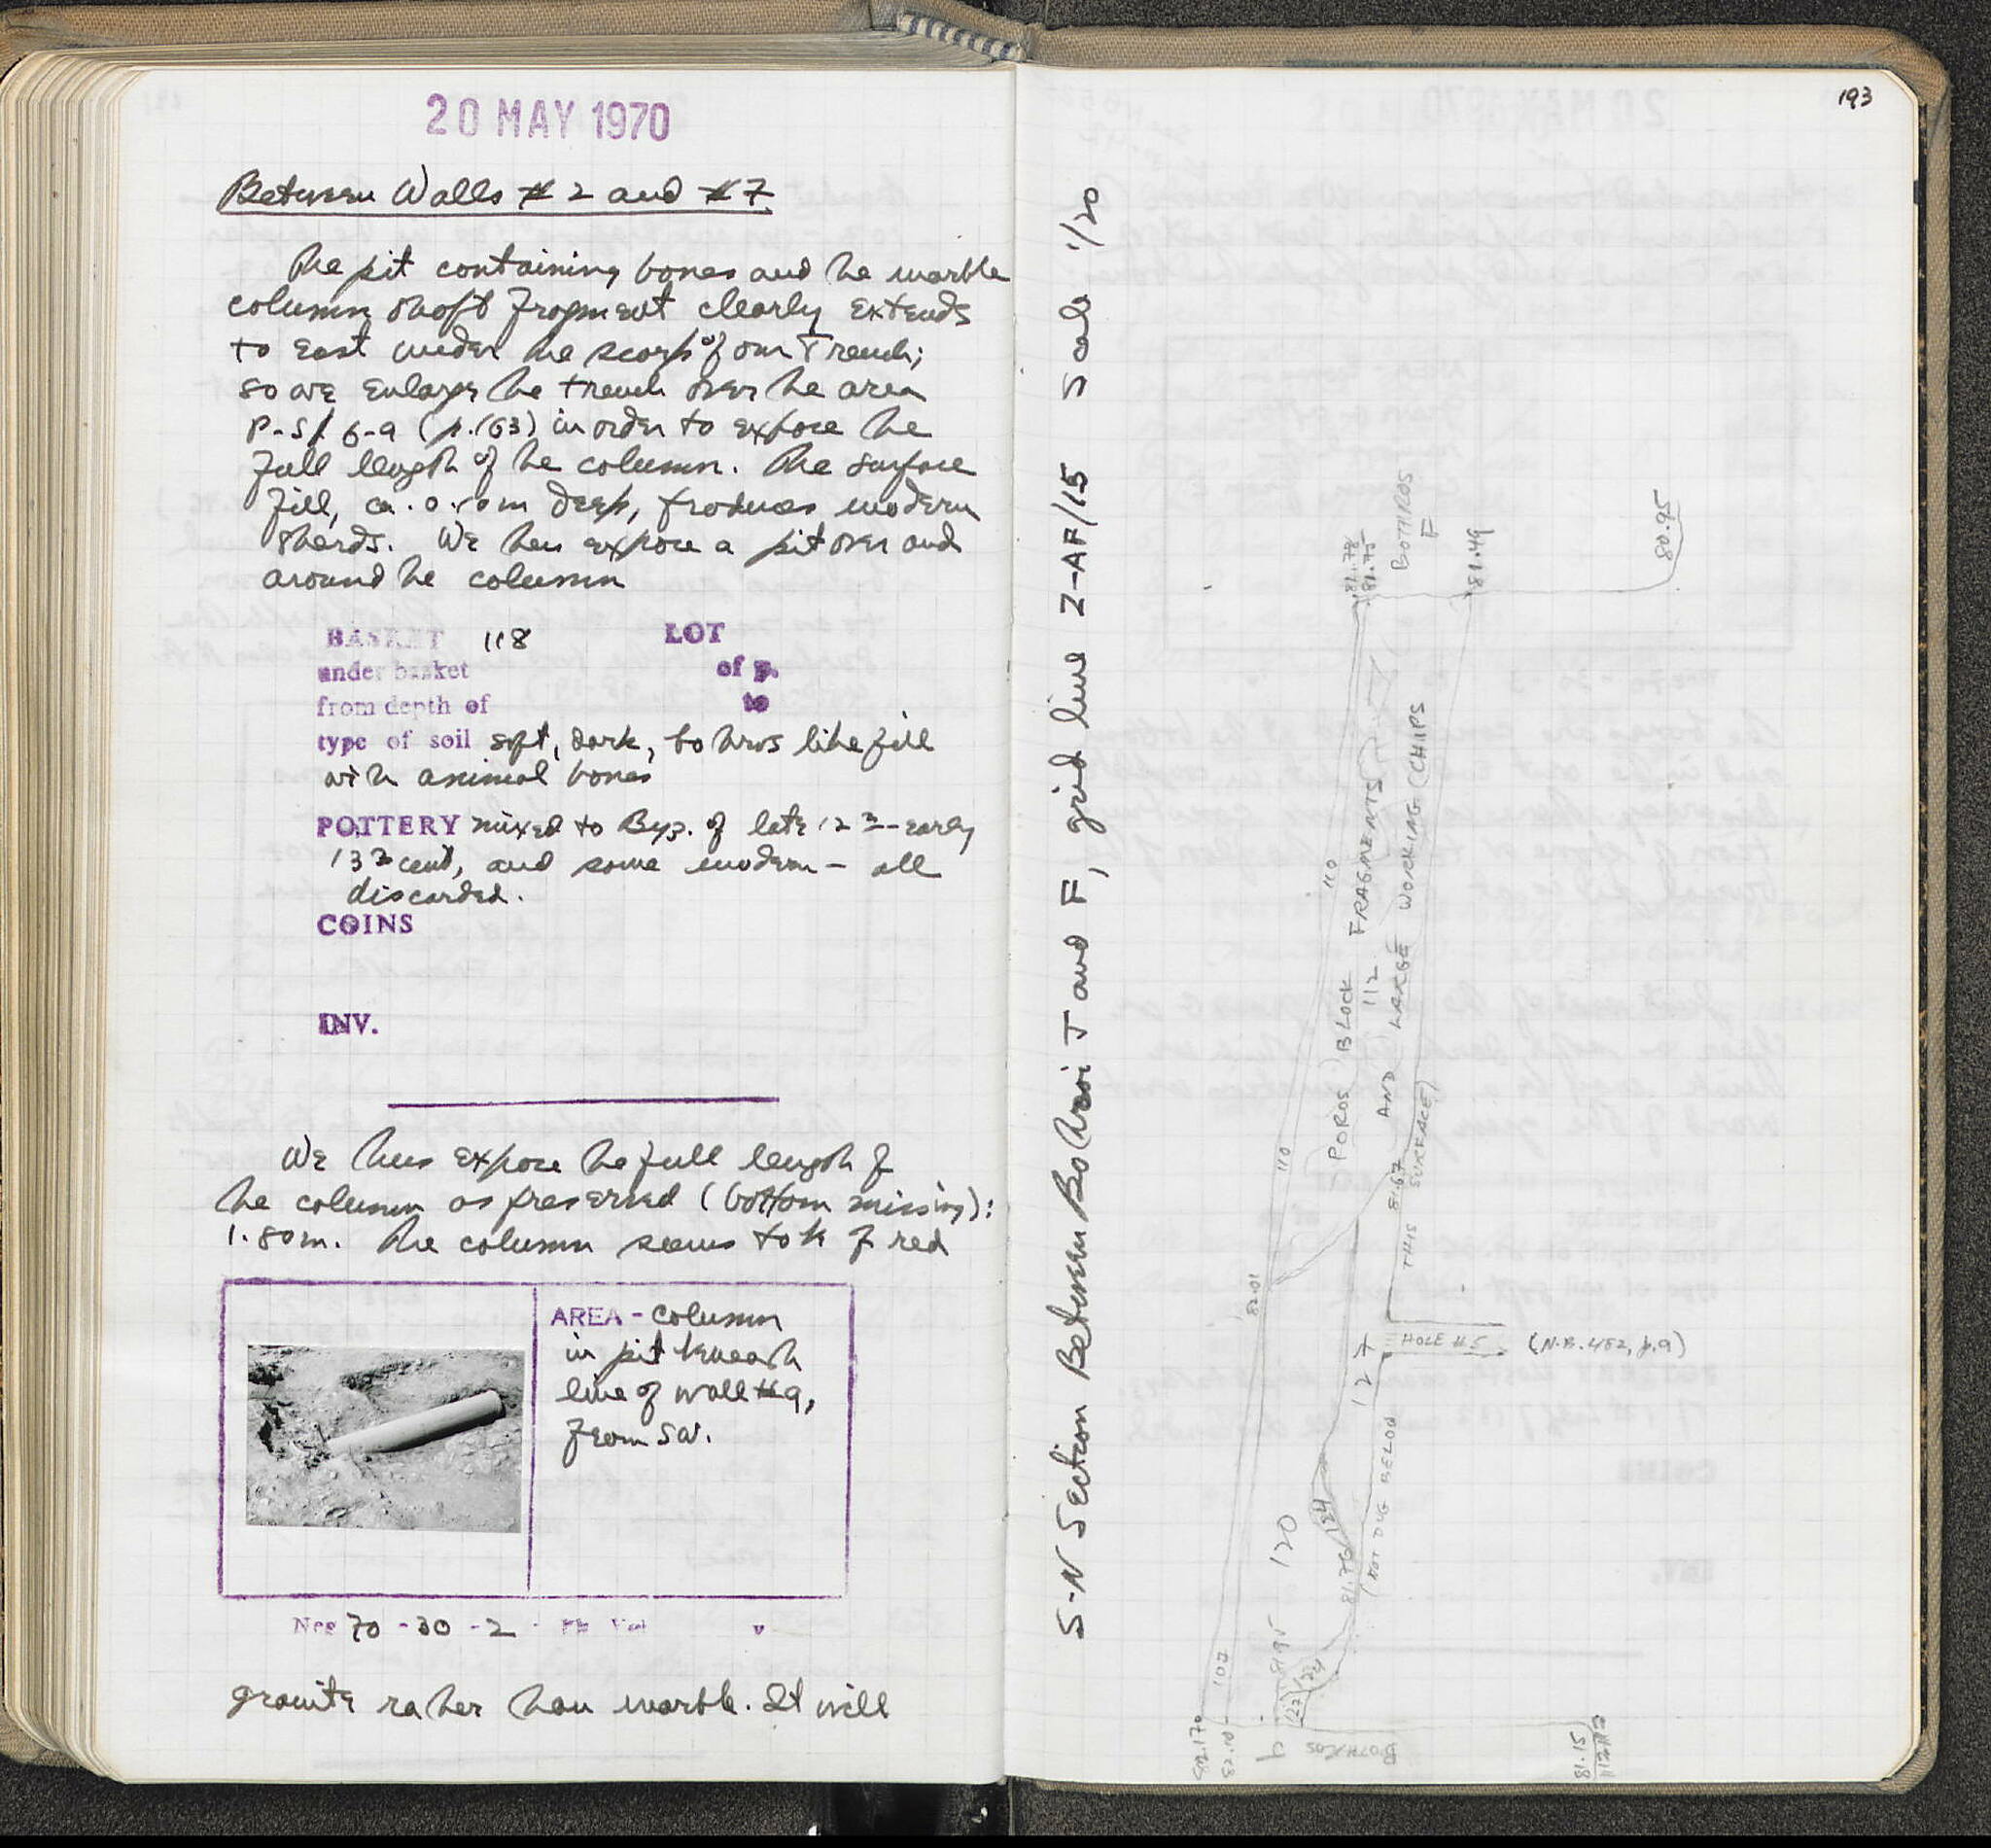 20 MAY 1970
Between Walls #2 and #7
The pit containing bones and the marble
column shaft fragment clearly extends
to east under the scarp of our Trench;
so we enlarge the trench over the area
P-S/ 6-9 (p.163) in order to expose the
full length of the column. The surface
fill, ca. 0.10m deep, produces modern
sherds. We then expose a pit over and
around the column
BASKET 118 LOT
under basket of p.
from depth of to
type of soil soft, dark, bothros like fill
with animal bones
POTTERY mixed to Byz. of late 12th-early
13th cent, and some modern - all
discarded.
COINS
INV.
We thus expose the full length of
the column as preserved (bottom missing):
1.80m. The column seems to be of red
AREA - column
in pit beneath
line of wall #9,
from SW.
Neg 70-30-2 Ph Vol p
granite rather than marble. It will
193
S-N Section Between Bothroi J and F, grid line Z-AF/15 Scale 1/20
81.78
81.75
BOTHROS
F
81.49
80.95
110
110
POROS BLOCK FRAGMENTS
112
AND LARGE WORKING CHIPS
(THIS SURFACE)
81.67
82.01
127
HOLE #5 (N.B. 482, p.9)
(NOT DUG BELOW
120
124
81.76
81.95
102
122
124
82.170
82.10
J
BOTHROS
81.15